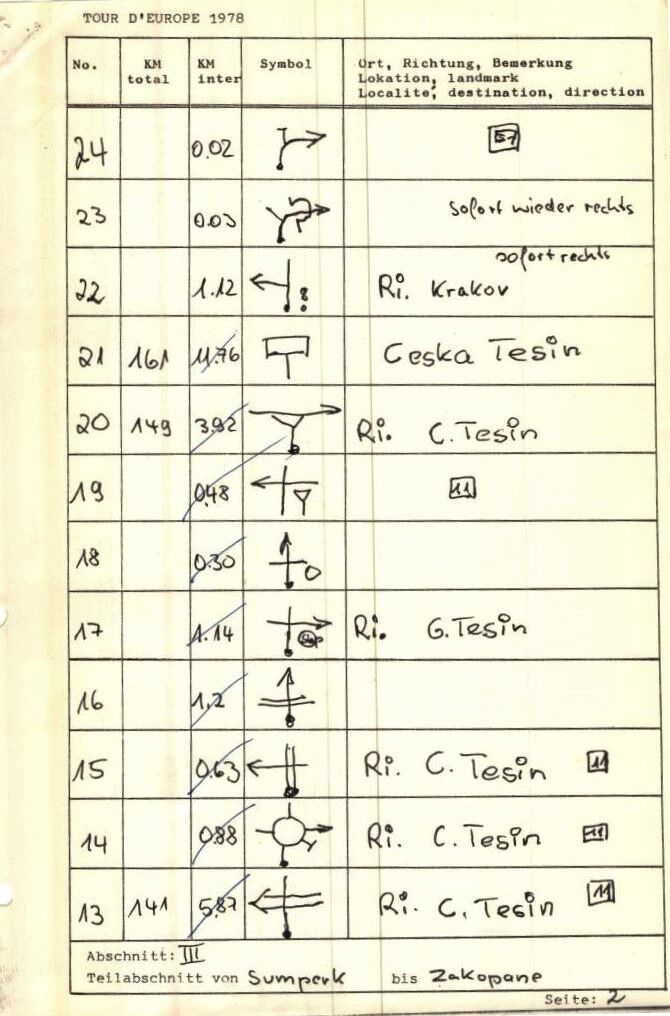 TOUR D'EUROPE 1978
No. KM total KM inter Symbol Ort, Richtung, Bemerkung
Lokation, landmark
Localite, destination, direction
24 0.02 E7
23 0.03 sofort wieder rechts
sofort rechts
22 1.12 Ri. Krakov
21 161 11.76 Ceska Tesin
20 149 3.92 Ri. C. Tesin
19 0.48 11
18 0.30
17 1.14 Stop Ri. C. Tesin
16 1.2
15 0.63 Ri. C. Tesin 11
14 0.88 Ri. C. Tesin 11
13 141 5.87 Ri. C. Tesin 11
Abschnitt: III
Teilabschnitt von Sumperk bis Zakopane
Seite: 2